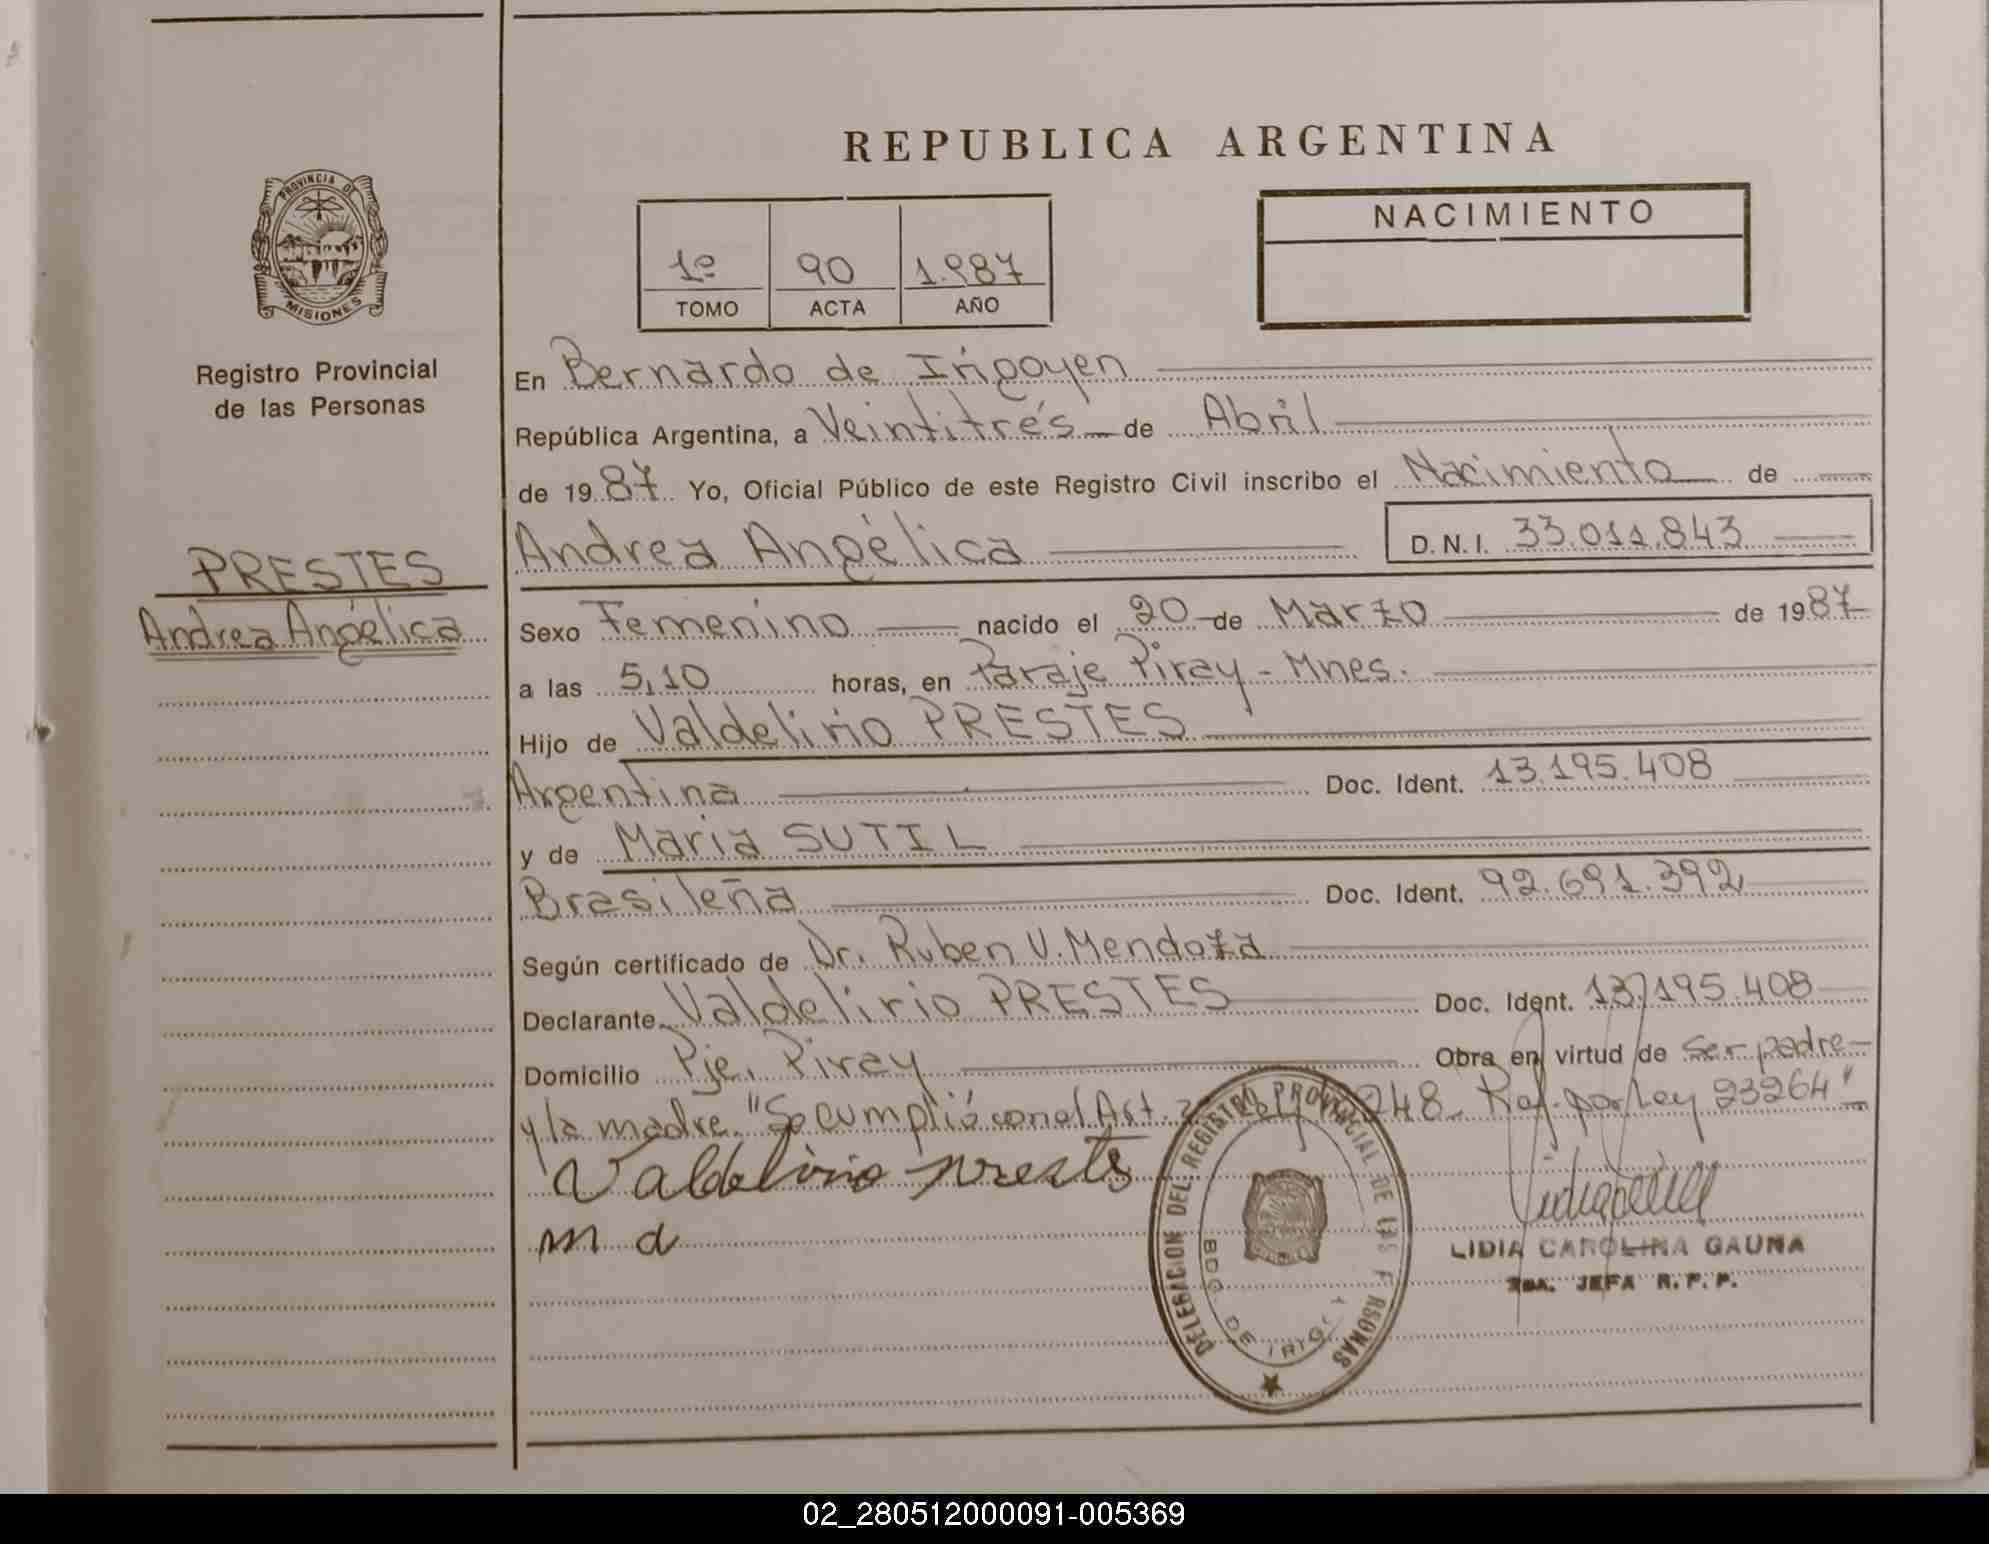 REPUBLICA ARGENTINA
PROVINCIA DE
MISIONES
Registro Provincial
de las Personas
PRESTES
Andrea Angélica
1º 90 1.987
TOMO ACTA AÑO
NACIMIENTO
En Bernardo de Irigoyen
República Argentina, a Veintitrés de Abril
de 1987 Yo, Oficial Público de este Registro Civil inscribo el Nacimiento de
Andrea Angélica D.N.I. 33.011.843
Sexo Femenino nacido el 20 de Marzo de 1987
a las 5,10 horas, en Paraje Piray - Mnes.
Hijo de Valdelirio PRESTES
Argentina Doc. Ident. 13.195.408
y de Maria SUTIL
Brasileña Doc. Ident. 92.691.392
Según certificado de Dr. Ruben V. Mendoza
Declarante Valdelirio PRESTES Doc. Ident. 13.195.408
Domicilio Pje. Piray Obra en virtud de Ser padre
y la madre. "Se cumplió con el Art. 248 Ref. por Ley 23264"
Valdelirio Prestes
m d
DELEGACION DEL REGISTRO PROVINCIAL DE LAS PERSONAS
BDO. DE IRIGOY
LIDIA CAROLINA GAUNA
JEFA R.P.P.
02_280512000091-005369